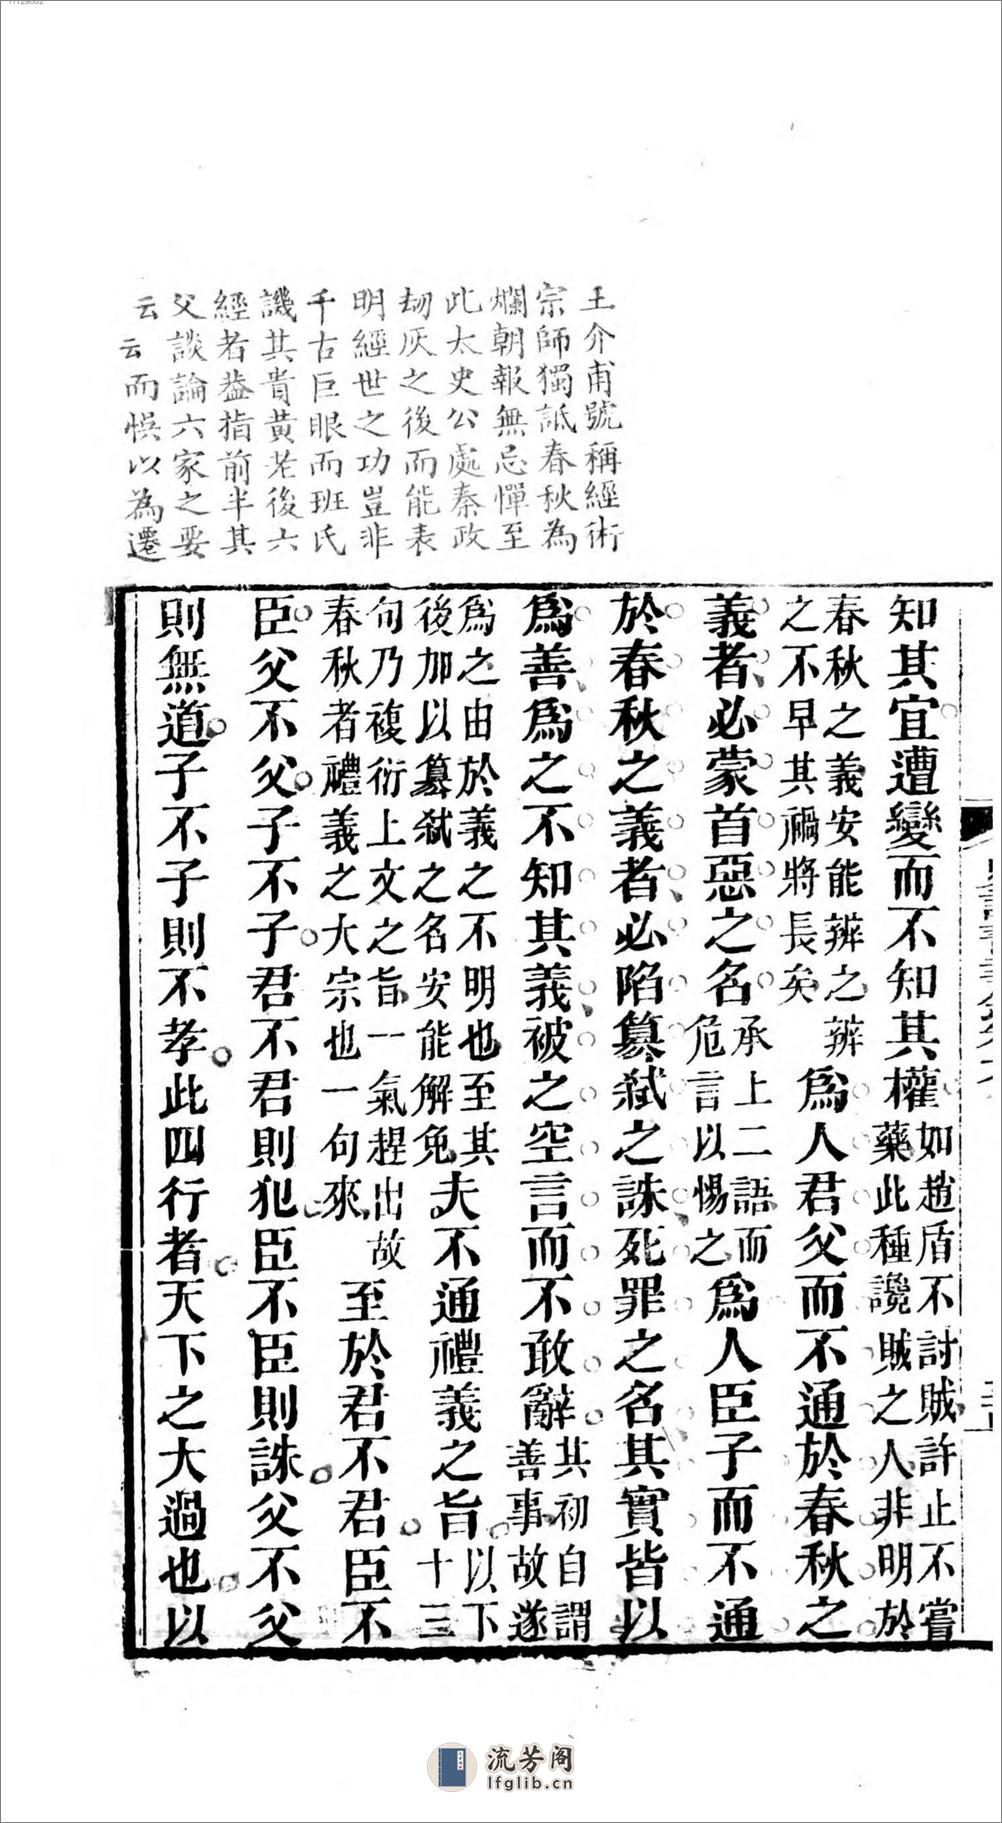 11129002
王介甫號稱經術
宗師獨詆春秋為
爛朝報無忌憚至
此太史公處秦政
劫灰之後而能表
明經世之功豈非
千古巨眼而班氏
譏其貴黄老後六
經者葢指前半其
父談論六家之要
云云而悞以為遷
知其宜遭變而不知其權如趙盾不討賊許止不嘗
藥此種讒賊之人非明於
春秋之義安能辨之辨
之不早其禍將長矣
爲人君父而不通於春秋之
義者必蒙首惡之名承上二語而
危言以惕之
爲人臣子而不通
於春秋之義者必陷簒弑之誅死罪之名其實皆以
爲善爲之不知其義被之空言而不敢辭其初自謂
善事故遂
爲之由於義之不明也至其
後加以簒弑之名安能解免
夫不通禮義之旨以下
十三
句乃複衍上文之旨一氣趕出故
春秋者禮義之大宗也一句來
至於君不君臣不
臣父不父子不子君不君則犯臣不臣則誅父不父
則無道子不子則不孝此四行者天下之大過也以
流芳阁
lfglib.cn